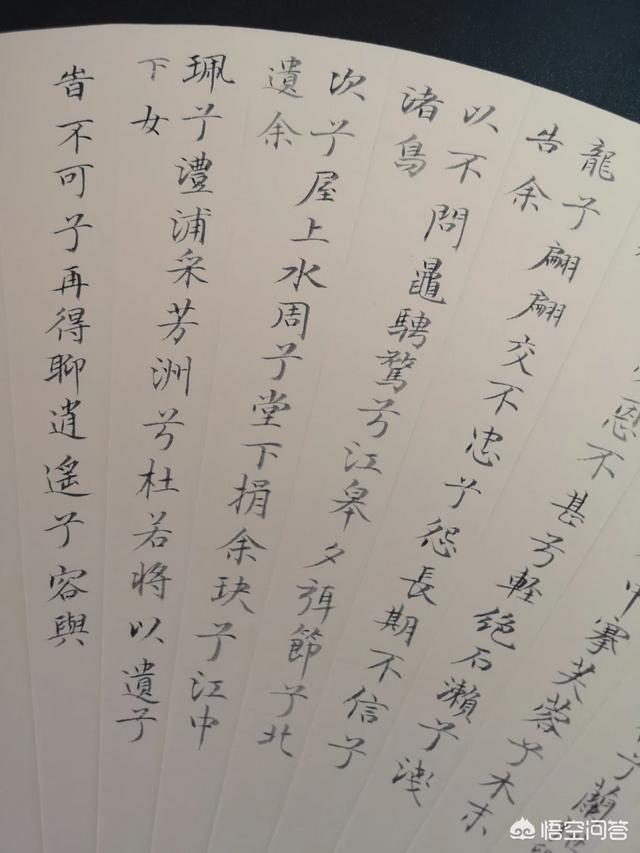 兮蘭
中搴芙蓉兮木末
恩不甚兮軽绝石瀬兮浅
龍兮翩翩交不忠兮怨長期不信兮
告余
以不間鼂騁騖兮江皋夕弭節兮北
渚鳥
次兮屋上水周兮堂下捐余玦兮江中
遺余
珮兮澧浦采芳洲兮杜若将以遺兮
下女
旹不可兮再得聊逍遙兮容與
悟空问答